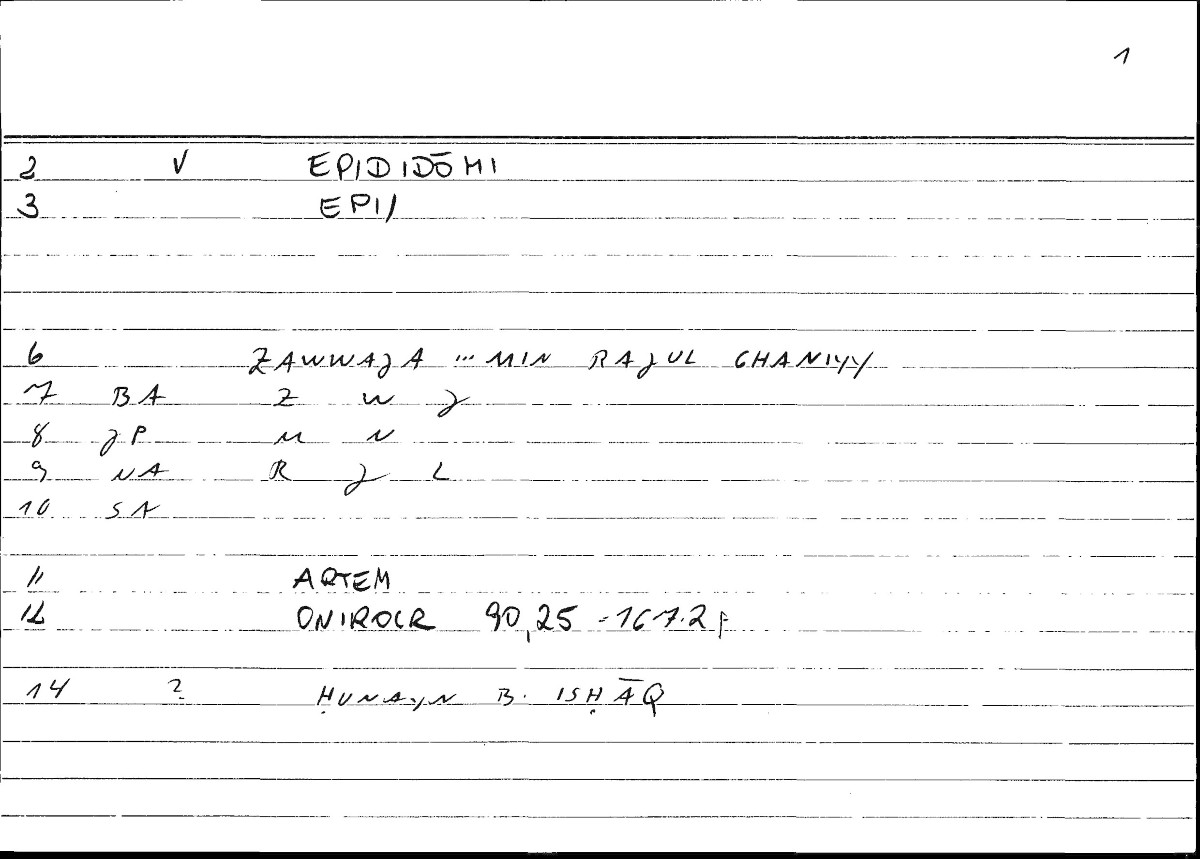 1
2 V EPIDIDŌMI
3 EPI/
6 ZAWWAJA ... MIN RAJUL GHANIYY
7 BA Z W J
8 JP M N
9 NA R J L
10 SA
11 ARTEM
12 ONIROCR 90,25 - 167.2 f
14 ? ḤUNAYN B. ISḤĀQ